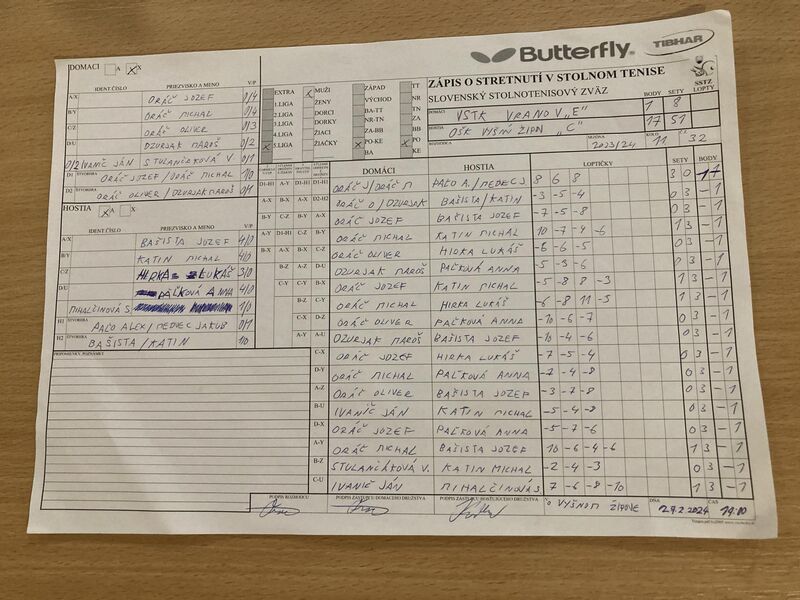 Butterfly
TIBHAR
DOMÁCI A X
IDENT.ČÍSLO PRIEZVISKO A MENO V/P
A/X ORÁČ JOZEF 0/4
B/Y ORÁČ MICHAL 0/4
C/Z ORÁČ OLIVER 0/3
D/U DZURJAK MAROŠ
IVANIČ JÁN
D1 ŠTVORHRA ORÁČ JOZEF / ORÁČ MICHAL 1/0
D2 ORÁČ OLIVER / DZURJAK MAROŠ 0/1
HOSTIA A X
IDENT.ČÍSLO PRIEZVISKO A MENO V/P
A/X BAŠISTA JOZEF 4/0
B/Y KATIN MICHAL 4/0
C/Z HIRKA LUKÁŠ 3/0
D/U PAČKOVÁ ANNA 4/0
MIHALČINOVÁ S 1/0
H1 ŠTVORHRA PAĽO ALEX / MEDVEC JAKUB 0/1
H2 BAŠISTA / KATIN 1/0
PRIPOMIENKY, POZNÁMKY
EXTRA MUŽI ZÁPAD TT
1.LIGA ŽENY VÝCHOD TN
2.LIGA DORCI BA-TT ZA
3.LIGA DORKY NR-TN
4.LIGA ŽIACI ZA-BB
5.LIGA ŽIAČKY PO-KE PO
BA KE
ZÁPIS O STRETNUTÍ V STOLNOM TENISE
SLOVENSKÝ STOLNOTENISOVÝ ZVÄZ
SSTZ
BODY SETY LOPTY
DOMÁCI VSTK VRANOV „E" 1 8
HOSTIA OŠK VYŠNÝ ŽIPOV „C" 17 51
SEZÓNA 2023/24 KOLO 11
DOMÁCI HOSTIA LOPTIČKY SETY BODY
D1-H1 ORÁČ J/ORÁČ M PAĽO A./MEDVEC J 8 6 8 3 0
D2-H2 ORÁČ O/DZURJAK BAŠISTA/KATIN -3 -5 -4 0 3 - 1
A-X ORÁČ JOZEF BAŠISTA JOZEF -7 -5 -8 0 3 - 1
B-Y ORÁČ MICHAL KATIN MICHAL 10 -7 -4 -6 1 3 - 1
C-Z ORÁČ OLIVER HIRKA LUKÁŠ -6 -6 -5 0 3 - 1
D-U DZURJAK MAROŠ PAČKOVÁ ANNA -5 -3 -6 0 3 - 1
B-X ORÁČ JOZEF KATIN MICHAL -5 -8 8 -3 1 3 - 1
C-Y ORÁČ MICHAL HIRKA LUKÁŠ -6 -8 11 -5 1 3 - 1
D-Z ORÁČ OLIVER PAČKOVÁ ANNA -10 -6 -7 0 3 - 1
A-U DZURJAK MAROŠ BAŠISTA JOZEF -10 -4 -6 0 3 - 1
C-X ORÁČ JOZEF HIRKA LUKÁŠ -7 -5 -4 0 3 - 1
D-Y ORÁČ MICHAL PAČKOVÁ ANNA -7 -4 -8 0 3 - 1
A-Z ORÁČ OLIVER BAŠISTA JOZEF -3 -7 -8 0 3 - 1
B-U IVANIČ JÁN KATIN MICHAL -5 -4 -8 0 3 - 1
D-X ORÁČ JOZEF PAČKOVÁ ANNA -5 -7 -6 0 3 - 1
A-Y ORÁČ MICHAL BAŠISTA JOZEF 10 -6 -4 -6 1 3 - 1
B-Z STULANČÁKOVÁ V. KATIN MICHAL -2 -4 -3 0 3 - 1
C-U IVANIČ JÁN MIHALČINOVÁ S 7 -6 -8 -10 1 3 - 1
PODPIS ROZHODCU PODPIS ZÁSTUPCU DOMÁCEHO DRUŽSTVA PODPIS ZÁSTUPCU HOSŤUJÚCEHO DRUŽSTVA VO VYŠNOM ŽIPOVE DŇA 27.2.2024 ČAS